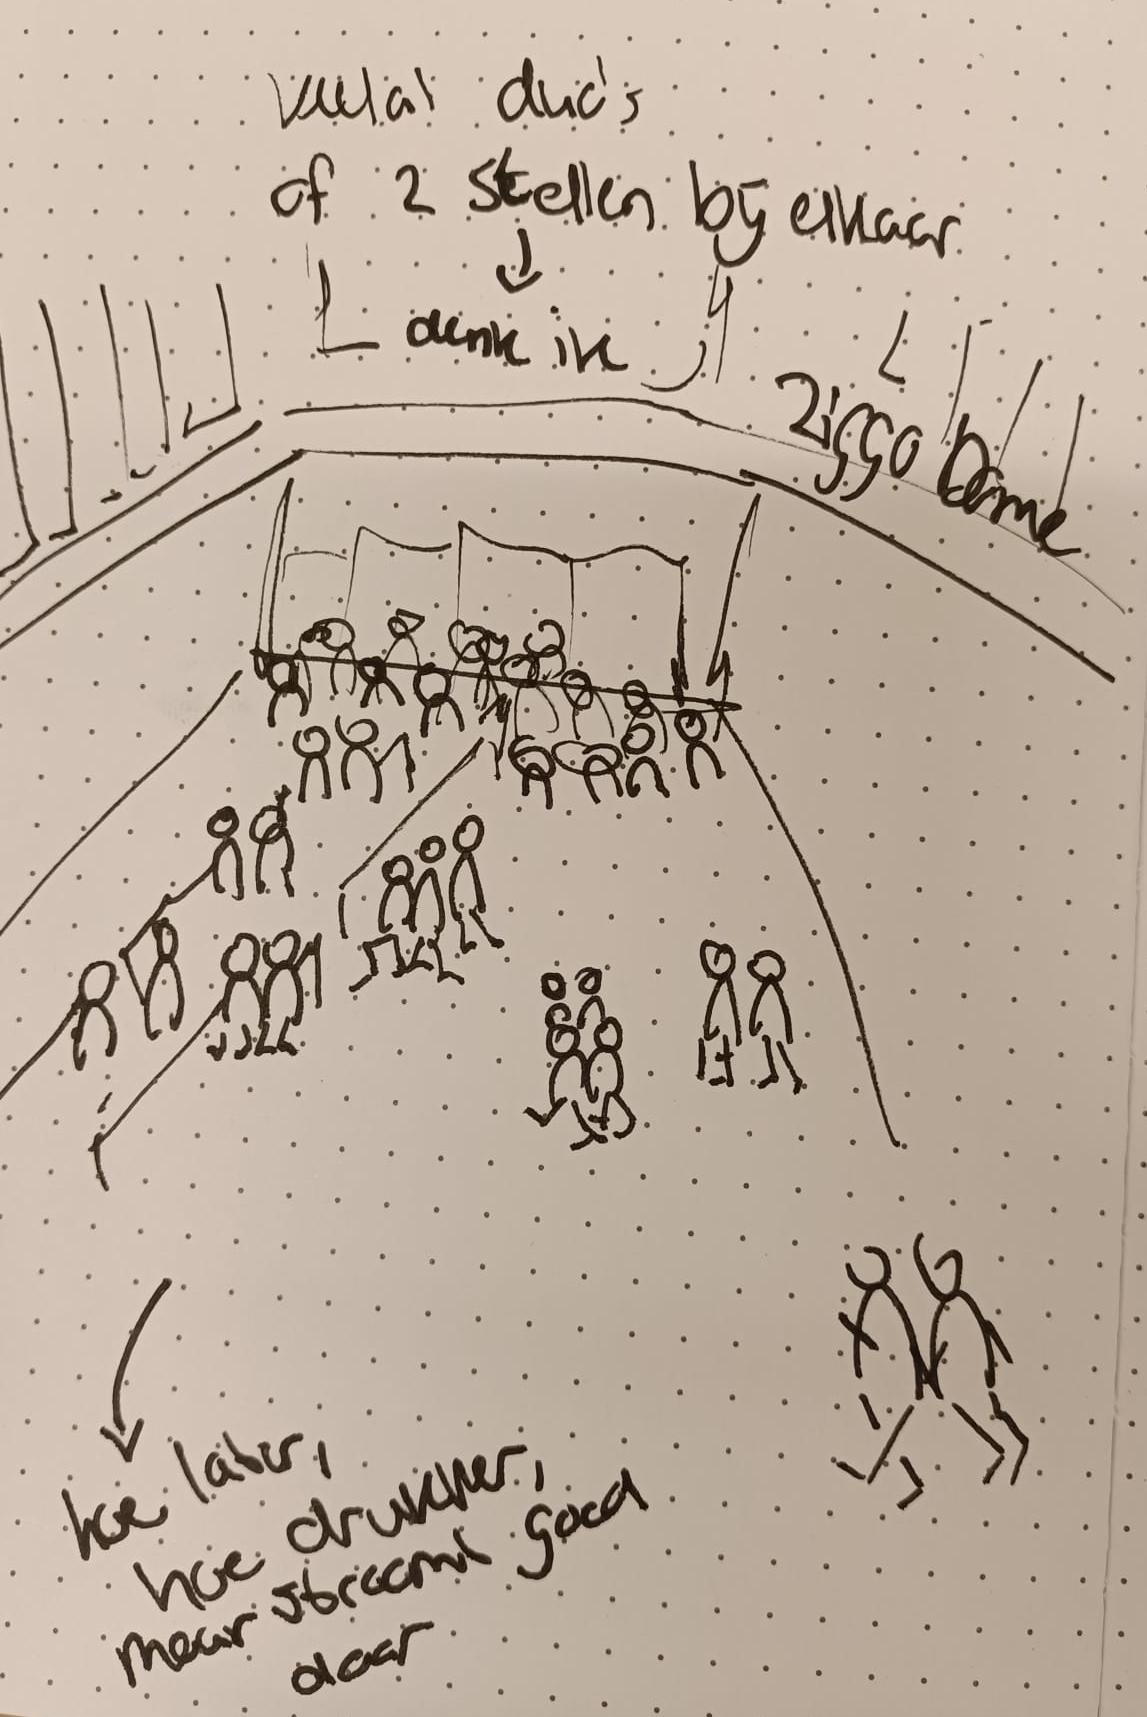 veelal duo's
of 2 stellen bij elkaar
denk ik
Ziggo Dome
hoe later,
hoe drukker,
maar stroomt goed
daar